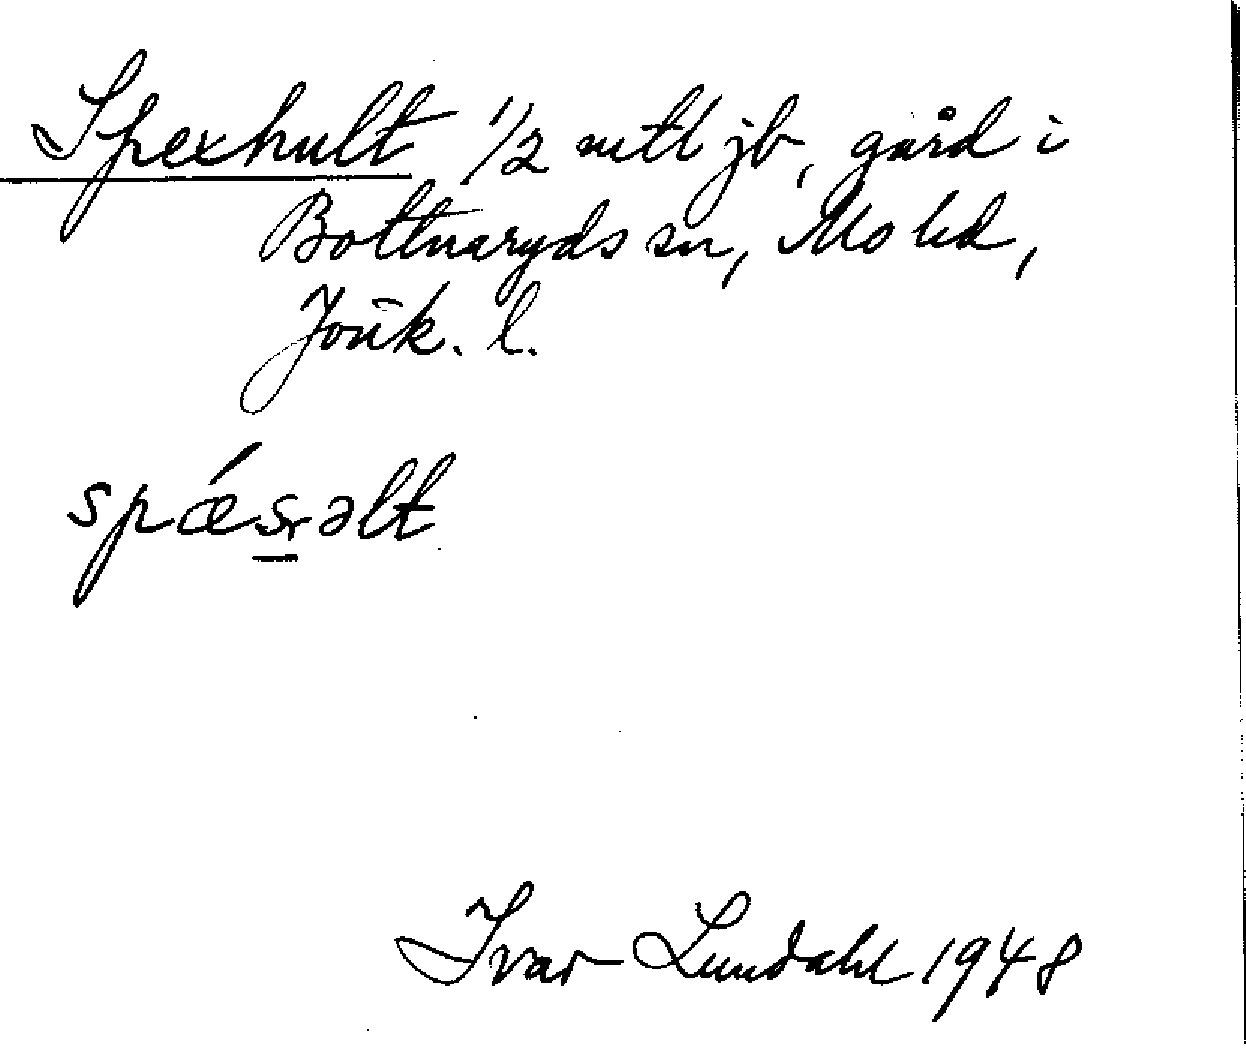 Spexhult 1/2 mtl jb, gård i
Bottnaryds sn, Mo hd,
Jönk. l.
spǽsəlt
Ivar Lundahl 1948